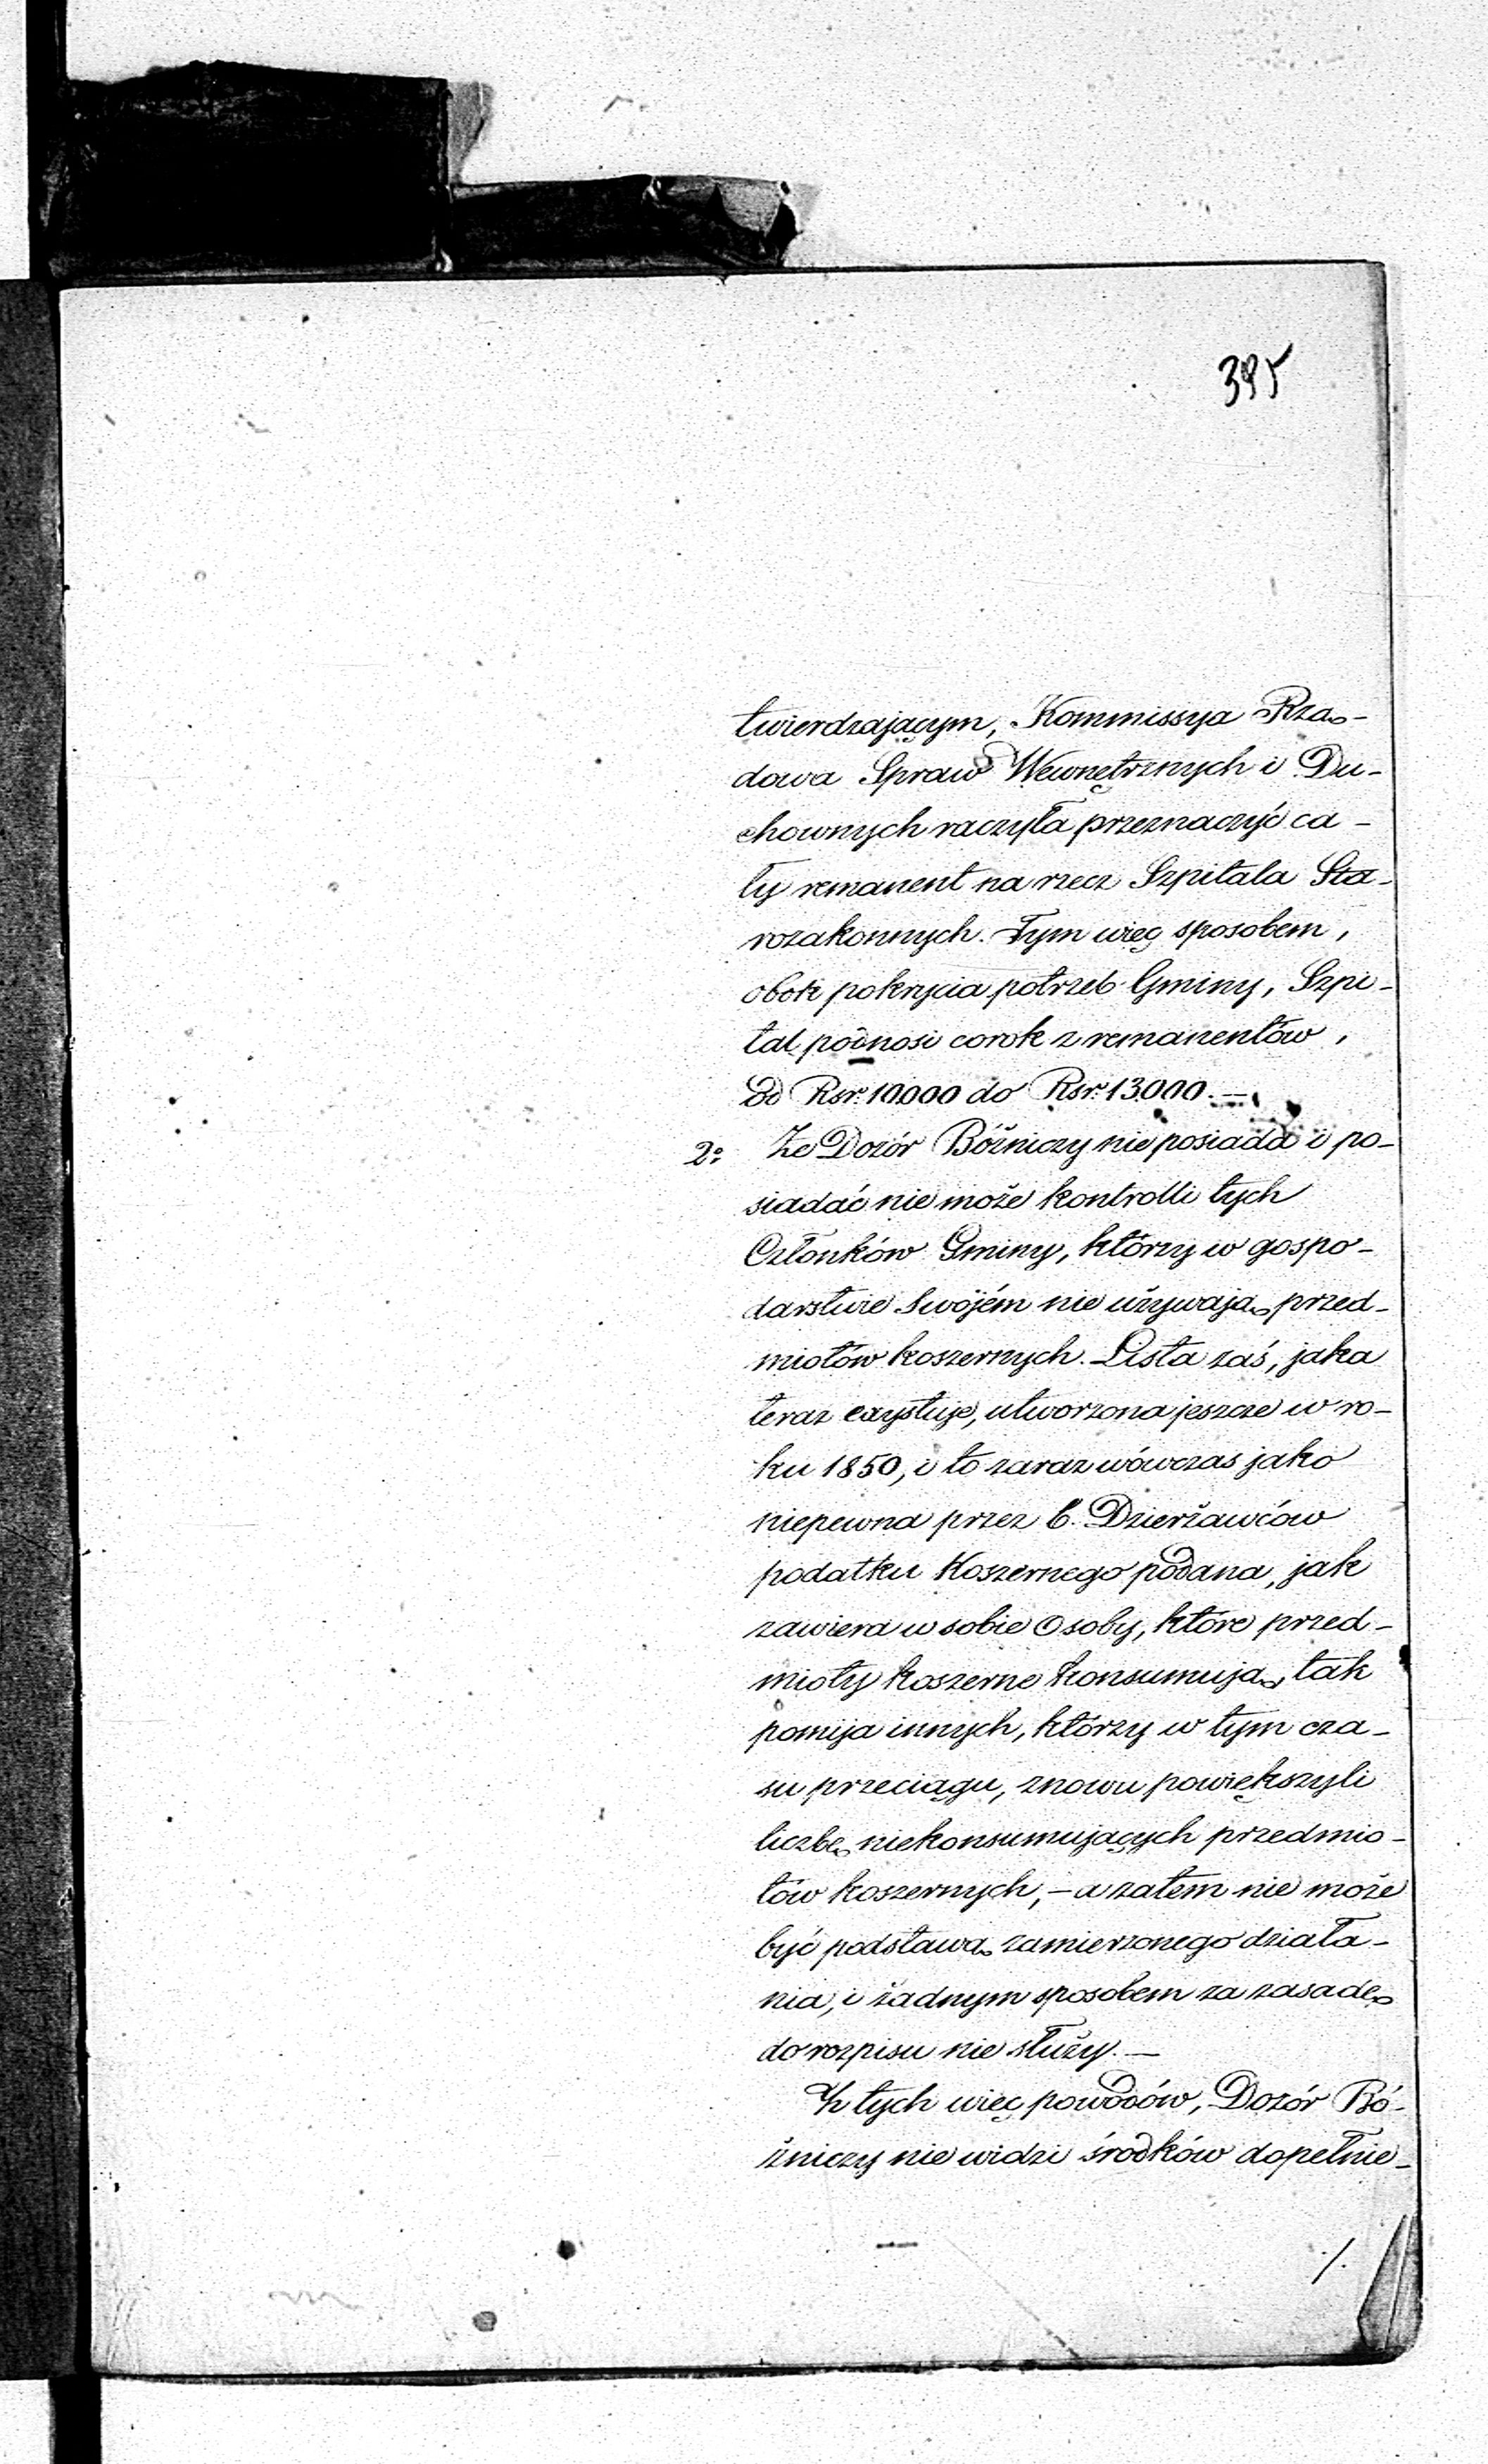 395
twierdzającym, Kommissya Rzą-
dowa Spraw Wewnętrznych i Du-
chownych raczyła przeznaczyć ca-
ły remanent na rzecz Szpitala Sta-
rozakonnych. Tym więc sposobem,
obok pokrycia potrzeb Gminy, Szpi-
tal podnosi corok z remanentów,
od Rsr. 10.000 do Rsr. 13.000. —
2o Że Dozór Bóżniczy nie posiada i po-
siadać nie może kontrolli tych
Członków Gminy, którzy w gospo-
darstwie swójém nie używają przed-
miotów koszernych. Lista zaś, jaka
teraz exystuje, utworzona jeszcze w ro-
ku 1850, i to zaraz wówczas jako
niepewna przez b. Dzierżawców
podatku Koszernego podana, jak
zawiera w sobie Osoby, które przed-
mioty koszerne konsumują, tak
pomija innych, którzy w tym cza-
su przeciągu, znowu powiększyli
liczbę niekonsumujących przedmio-
tów koszernych, — a zatem nie może
być podstawą zamierzonego działa-
nia, i żadnym sposobem za zasadę
do rozpisu nie służy. —
Z tych więc powodów, Dozór Bó-
żniczy nie widzi środków dopełnie-
./.